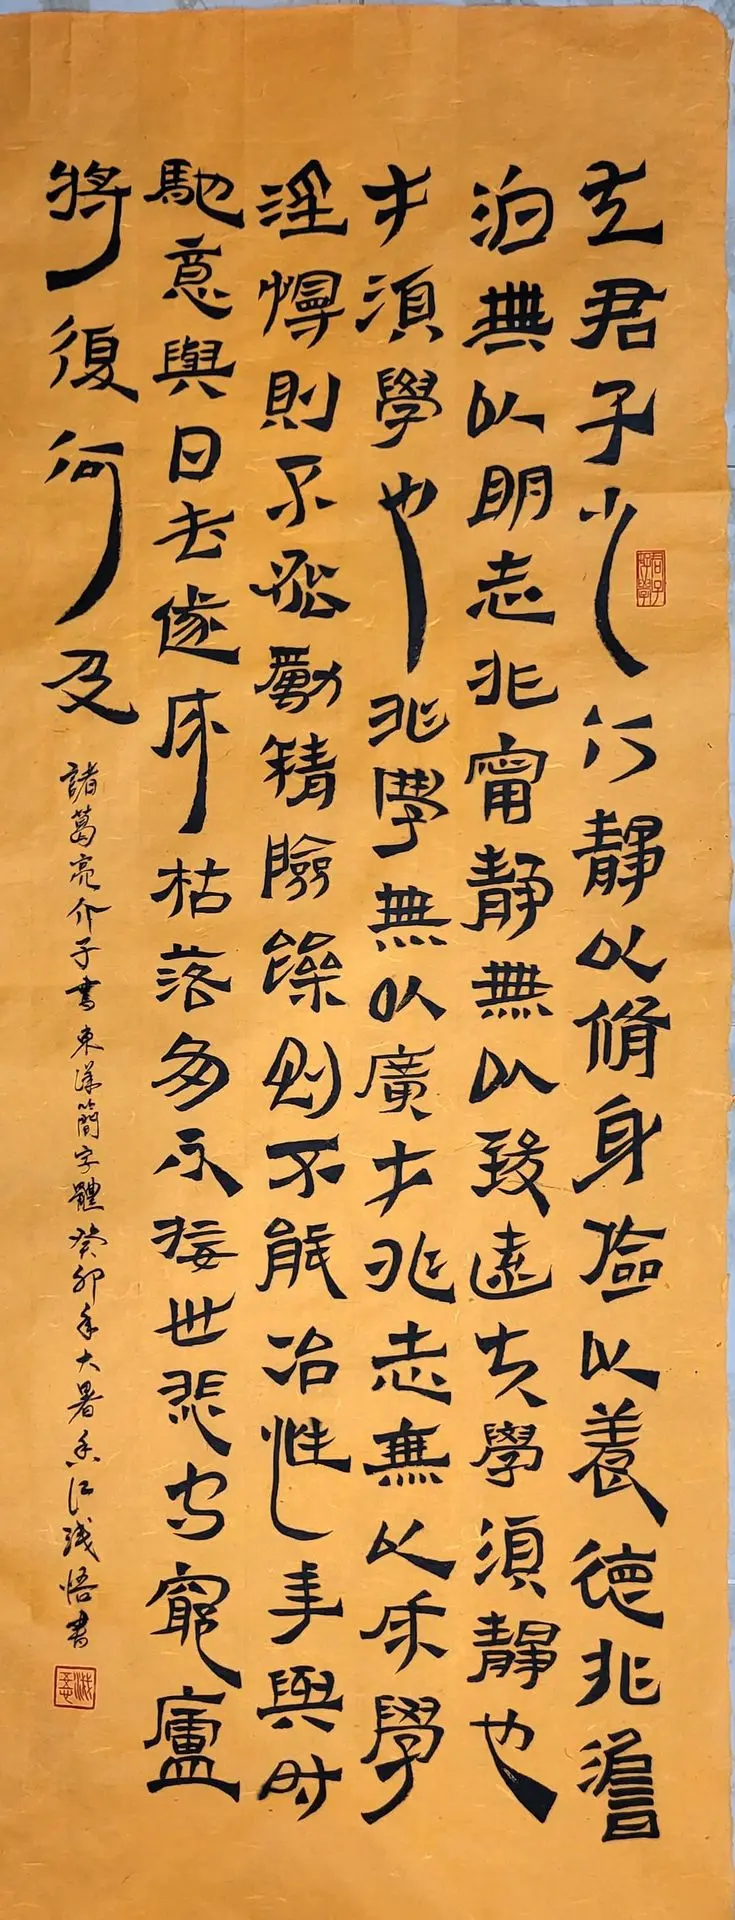 夫君子之行靜以脩身儉以養德非澹
泊無以明志非甯靜無以致遠夫學須靜也
才須學也非學無以廣才非志無以成學
淫慢則不能勵精險躁則不能冶性年與时
馳意與日去遂成枯落多不接世悲守窮廬
將復何及
諸葛亮介子書東漢簡字體癸卯年大暑香江淺悟書
君子好學